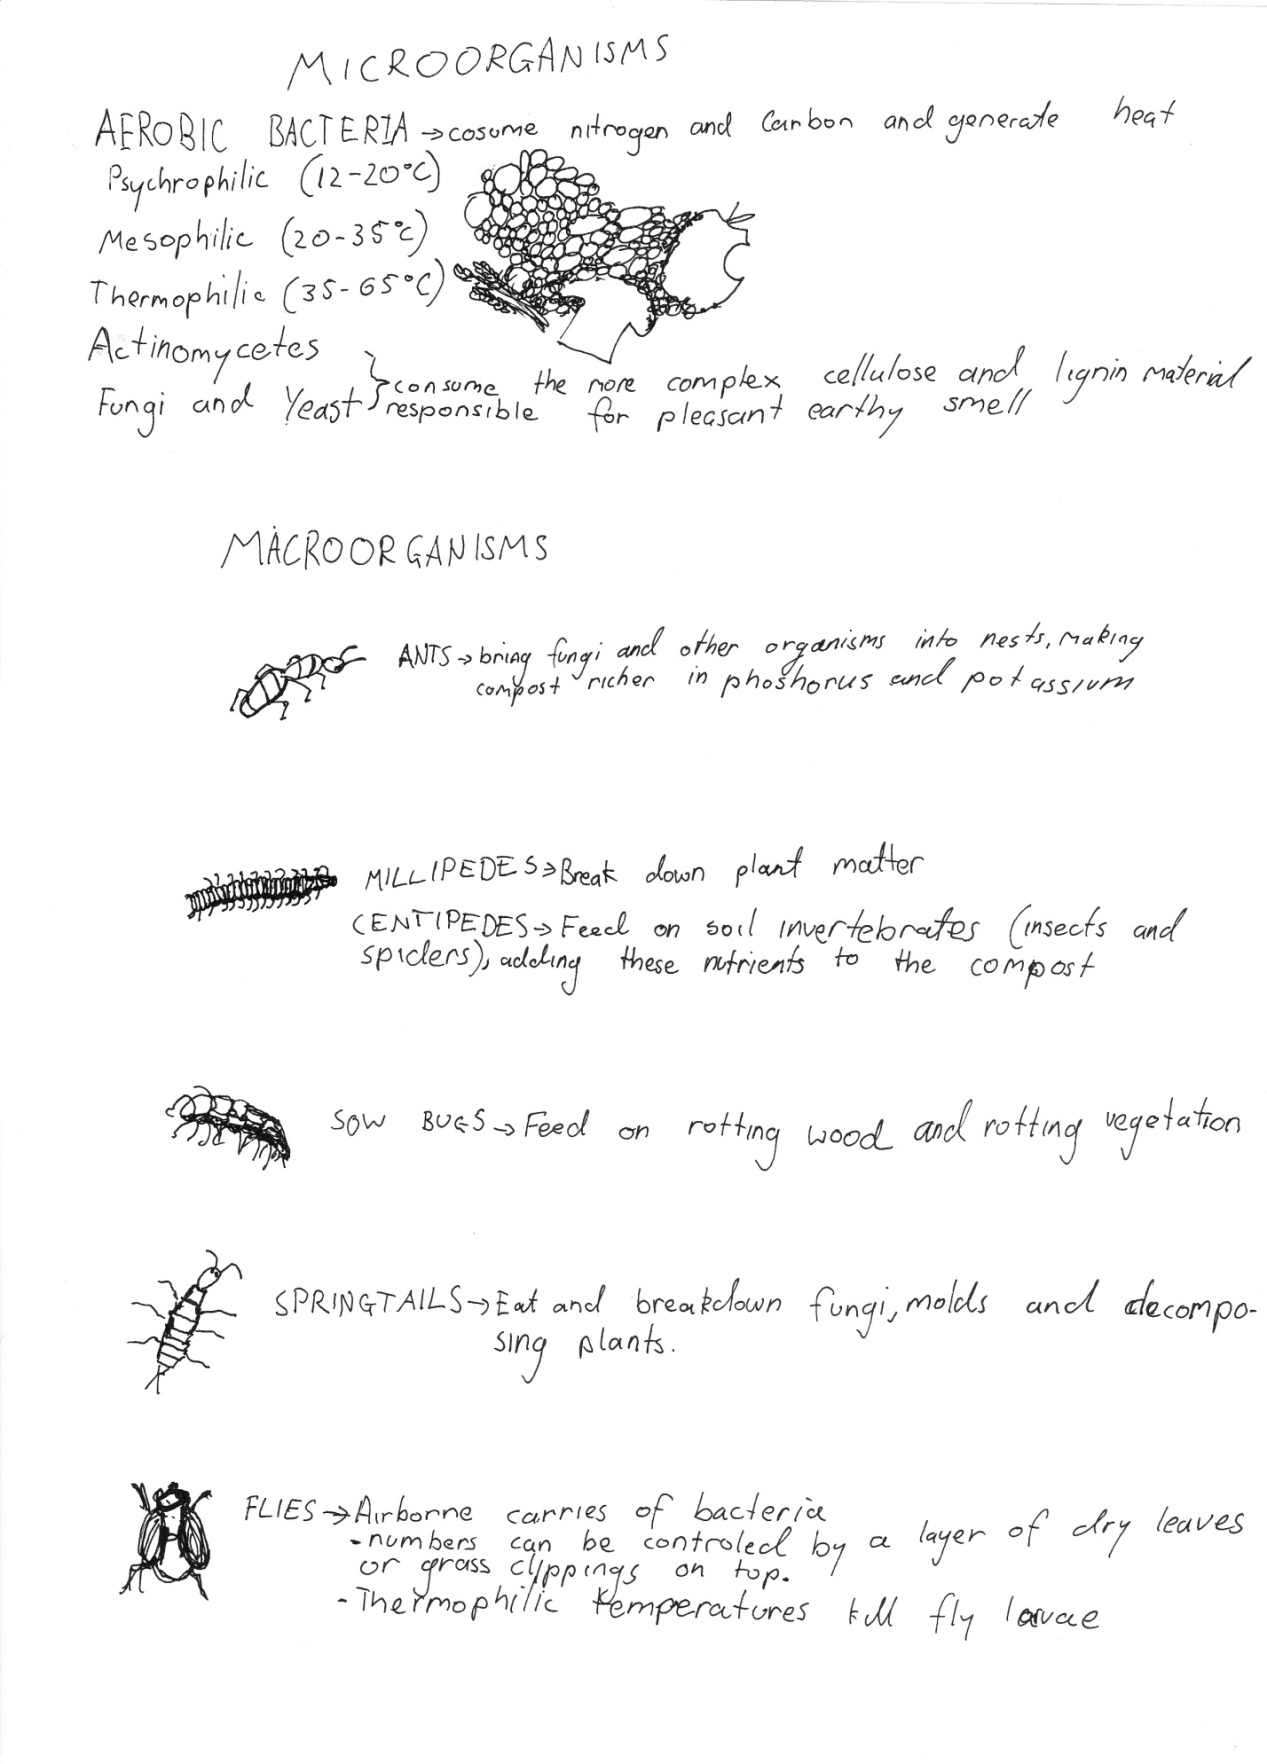 MICROORGANISMS
AEROBIC BACTERIA → cosume nitrogen and Carbon and generate heat
Psychrophilic (12-20°C)
Mesophilic (20-35°C)
Thermophilic (35-65°C)
Actinomycetes
Fungi and Yeast
consume the more complex cellulose and lignin material
responsible for pleasant earthy smell
MACROORGANISMS
ANTS → bring fungi and other organisms into nests, making
compost richer in phoshorus and potassium
MILLIPEDES → Break down plant matter
CENTIPEDES → Feed on soil invertebrates (insects and
spiders), adding these nutrients to the compost
SOW BUGS → Feed on rotting wood and rotting vegetation
SPRINGTAILS → Eat and breakdown fungi, molds and decompo-
sing plants.
FLIES → Airborne carries of bacteria
- numbers can be controled by a layer of dry leaves
or grass clippings on top.
- Thermophilic temperatures kill fly larvae